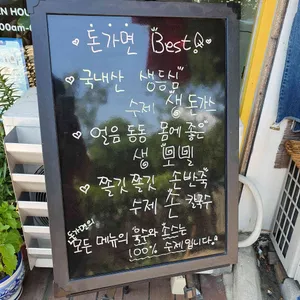 EN HOU
00am-
돈가면 Best
국내산 생등심
수제 생돈가스
얼음 동동 몸에 좋은
생 모밀
쫄깃쫄깃 손반죽
수제 손 칼국수
돈가면의
모든 메뉴의 육수와 소스는
100% 수제입니다.